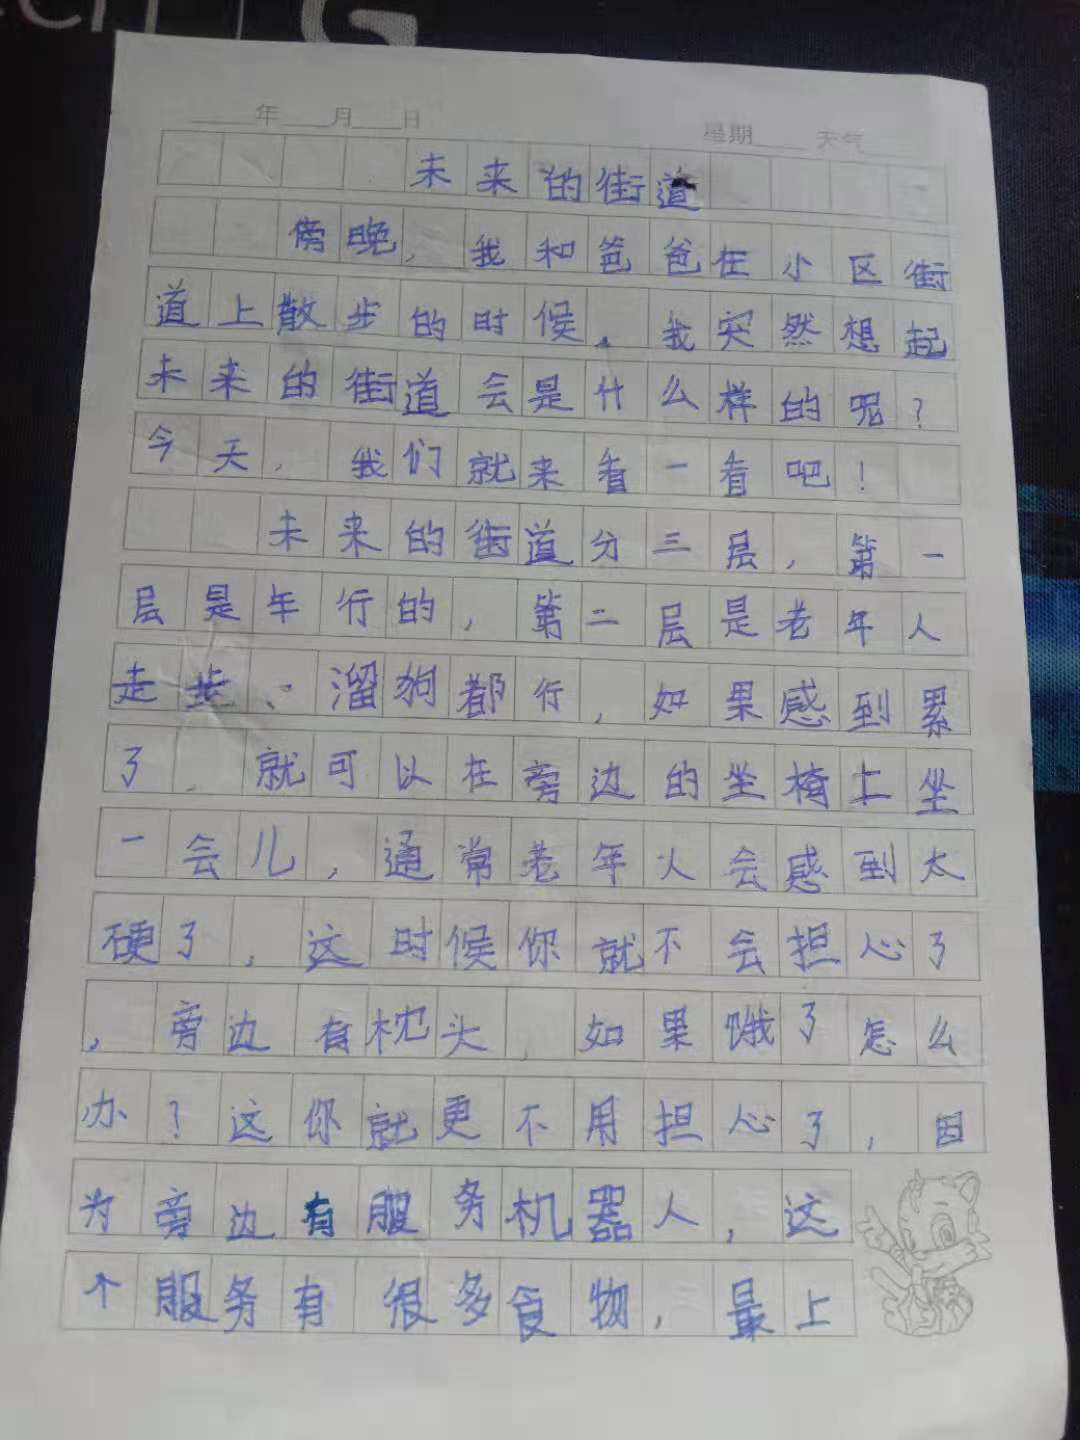 年 月 日 星期 天气
未来的街道
傍晚，我和爸爸在小区街
道上散步的时候，我突然想起
未来的街道会是什么样的呢？
今天，我们就来看一看吧！
未来的街道分三层，第一
层是车行的，第二层是老年人
走步、溜狗都行，如果感到累
了，就可以在旁边的坐椅上坐
一会儿，通常老年人会感到太
硬了，这时候你就不会担心了
，旁边有枕头，如果饿了怎么
办？这你就更不用担心了，因
为旁边有服务机器人，这
个服务有很多食物，最上